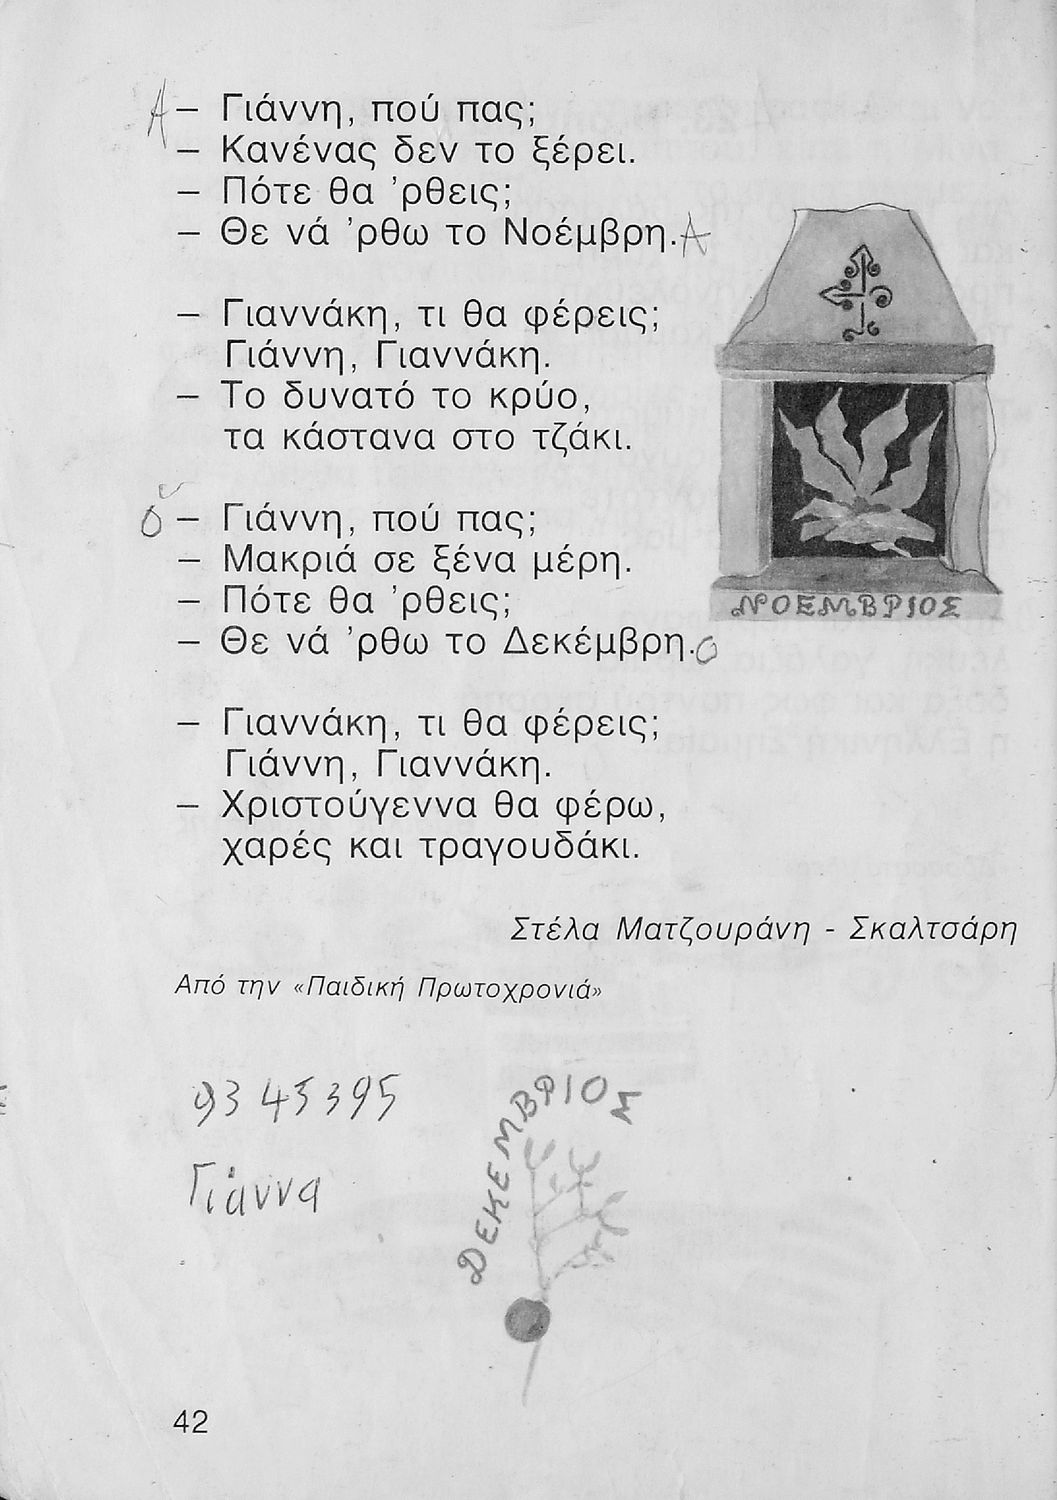 Α – Γιάννη, πού πας;
– Κανένας δεν το ξέρει.
– Πότε θα ’ρθεις;
– Θε νά ’ρθω το Νοέμβρη. Α
– Γιαννάκη, τι θα φέρεις;
Γιάννη, Γιαννάκη.
– Το δυνατό το κρύο,
τα κάστανα στο τζάκι.
– Γιάννη, πού πας;
– Μακριά σε ξένα μέρη.
– Πότε θα ’ρθεις;
– Θε νά ’ρθω το Δεκέμβρη.
– Γιαννάκη, τι θα φέρεις;
Γιάννη, Γιαννάκη.
– Χριστούγεννα θα φέρω,
χαρές και τραγουδάκι.
ΝΟΕΜΒΡΙΟΣ
Στέλα Ματζουράνη - Σκαλτσάρη
Από την «Παιδική Πρωτοχρονιά»
9345395
Γιάννα
ΔΕΚΕΜΒΡΙΟΣ
42